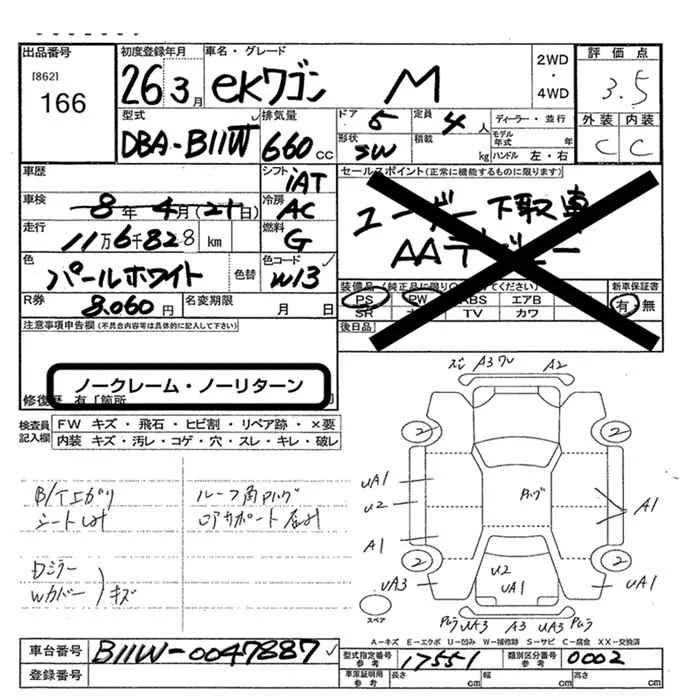 出品番号
[862]
166
初度登録年月
26 3月
車名・グレード
eKワゴン M
2WD
・
4WD
評価点
3.5
外装 内装
C C
型式
DBA-B11W
排気量
660cc
ドア
5
定員
4人
形状
SW
積載
kg
ディーラー・並行
モデル年式 年
ハンドル 左・右
車歴
シフト
iAT
車検
8年4月(21日)
冷房
AC
走行
11万6千828km
燃料
G
色
パールホワイト
色替
色コード
W13
R券
8,060円
名変期限
月 日
セールスポイント(正常に機能するものに限ります)
ユーザー下取車
AAデビュー
新車保証書
有・無
PS PW ABS エアB
SR TV カワ
後日品
注意事項申告欄(不具合内容等は具体的に記入して下さい)
ノークレーム・ノーリターン
修復歴 有「箇所
検査員記入欄
FW キズ・飛石・ヒビ割・リペア跡・×要
内装 キズ・汚レ・コゲ・穴・スレ・キレ・破レ
ルーフ角Pハゲ
Dミラー
Wカバー
キズ
A3 A2
2 2
UA1
U2
Pハゲ
A1
A1
2 2
UA3
U2
UA1
UA1
UA3 A3 UA3
スペア
A-キズ E-エクボ U-凹み W-補修跡 S-サビ C-腐食 XX-交換済
車台番号
B11W-0047887
登録番号
型式指定番号
参考
17551
類別区分番号
参考
0002
車庫証明用
参考
長さ cm
幅 cm
高さ cm